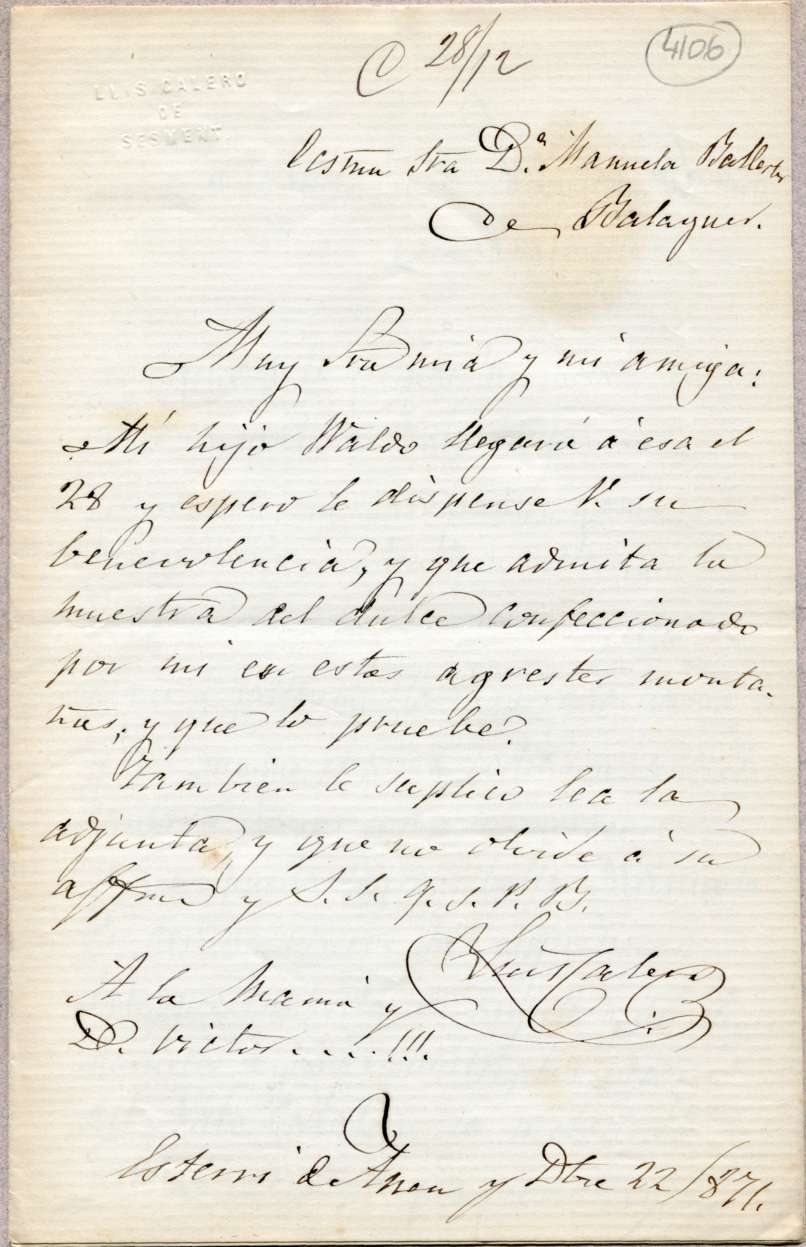 LUIS CALERO
DE
SESMENT.
C 28/12
4106
Ecsma Sra D.ª Manuela Ballester
de Balaguer.
Muy Sra mia y mi amiga:
Mi hijo Waldo llegará á esa el
28 y espero le dispense V. su
benevolencia, y que admita la
muestra del dulce confeccionado
por mi en estas agrestes monta-
ñas, y que lo pruebe.
Tambien le suplico lea la
adjunta, y que no olvide á su
affmo y S. S. q. s. P. B.
Luis Calero
A la Mamá y
D. Victor....!!!
Esterri de Aneu y Dbre 22/871.